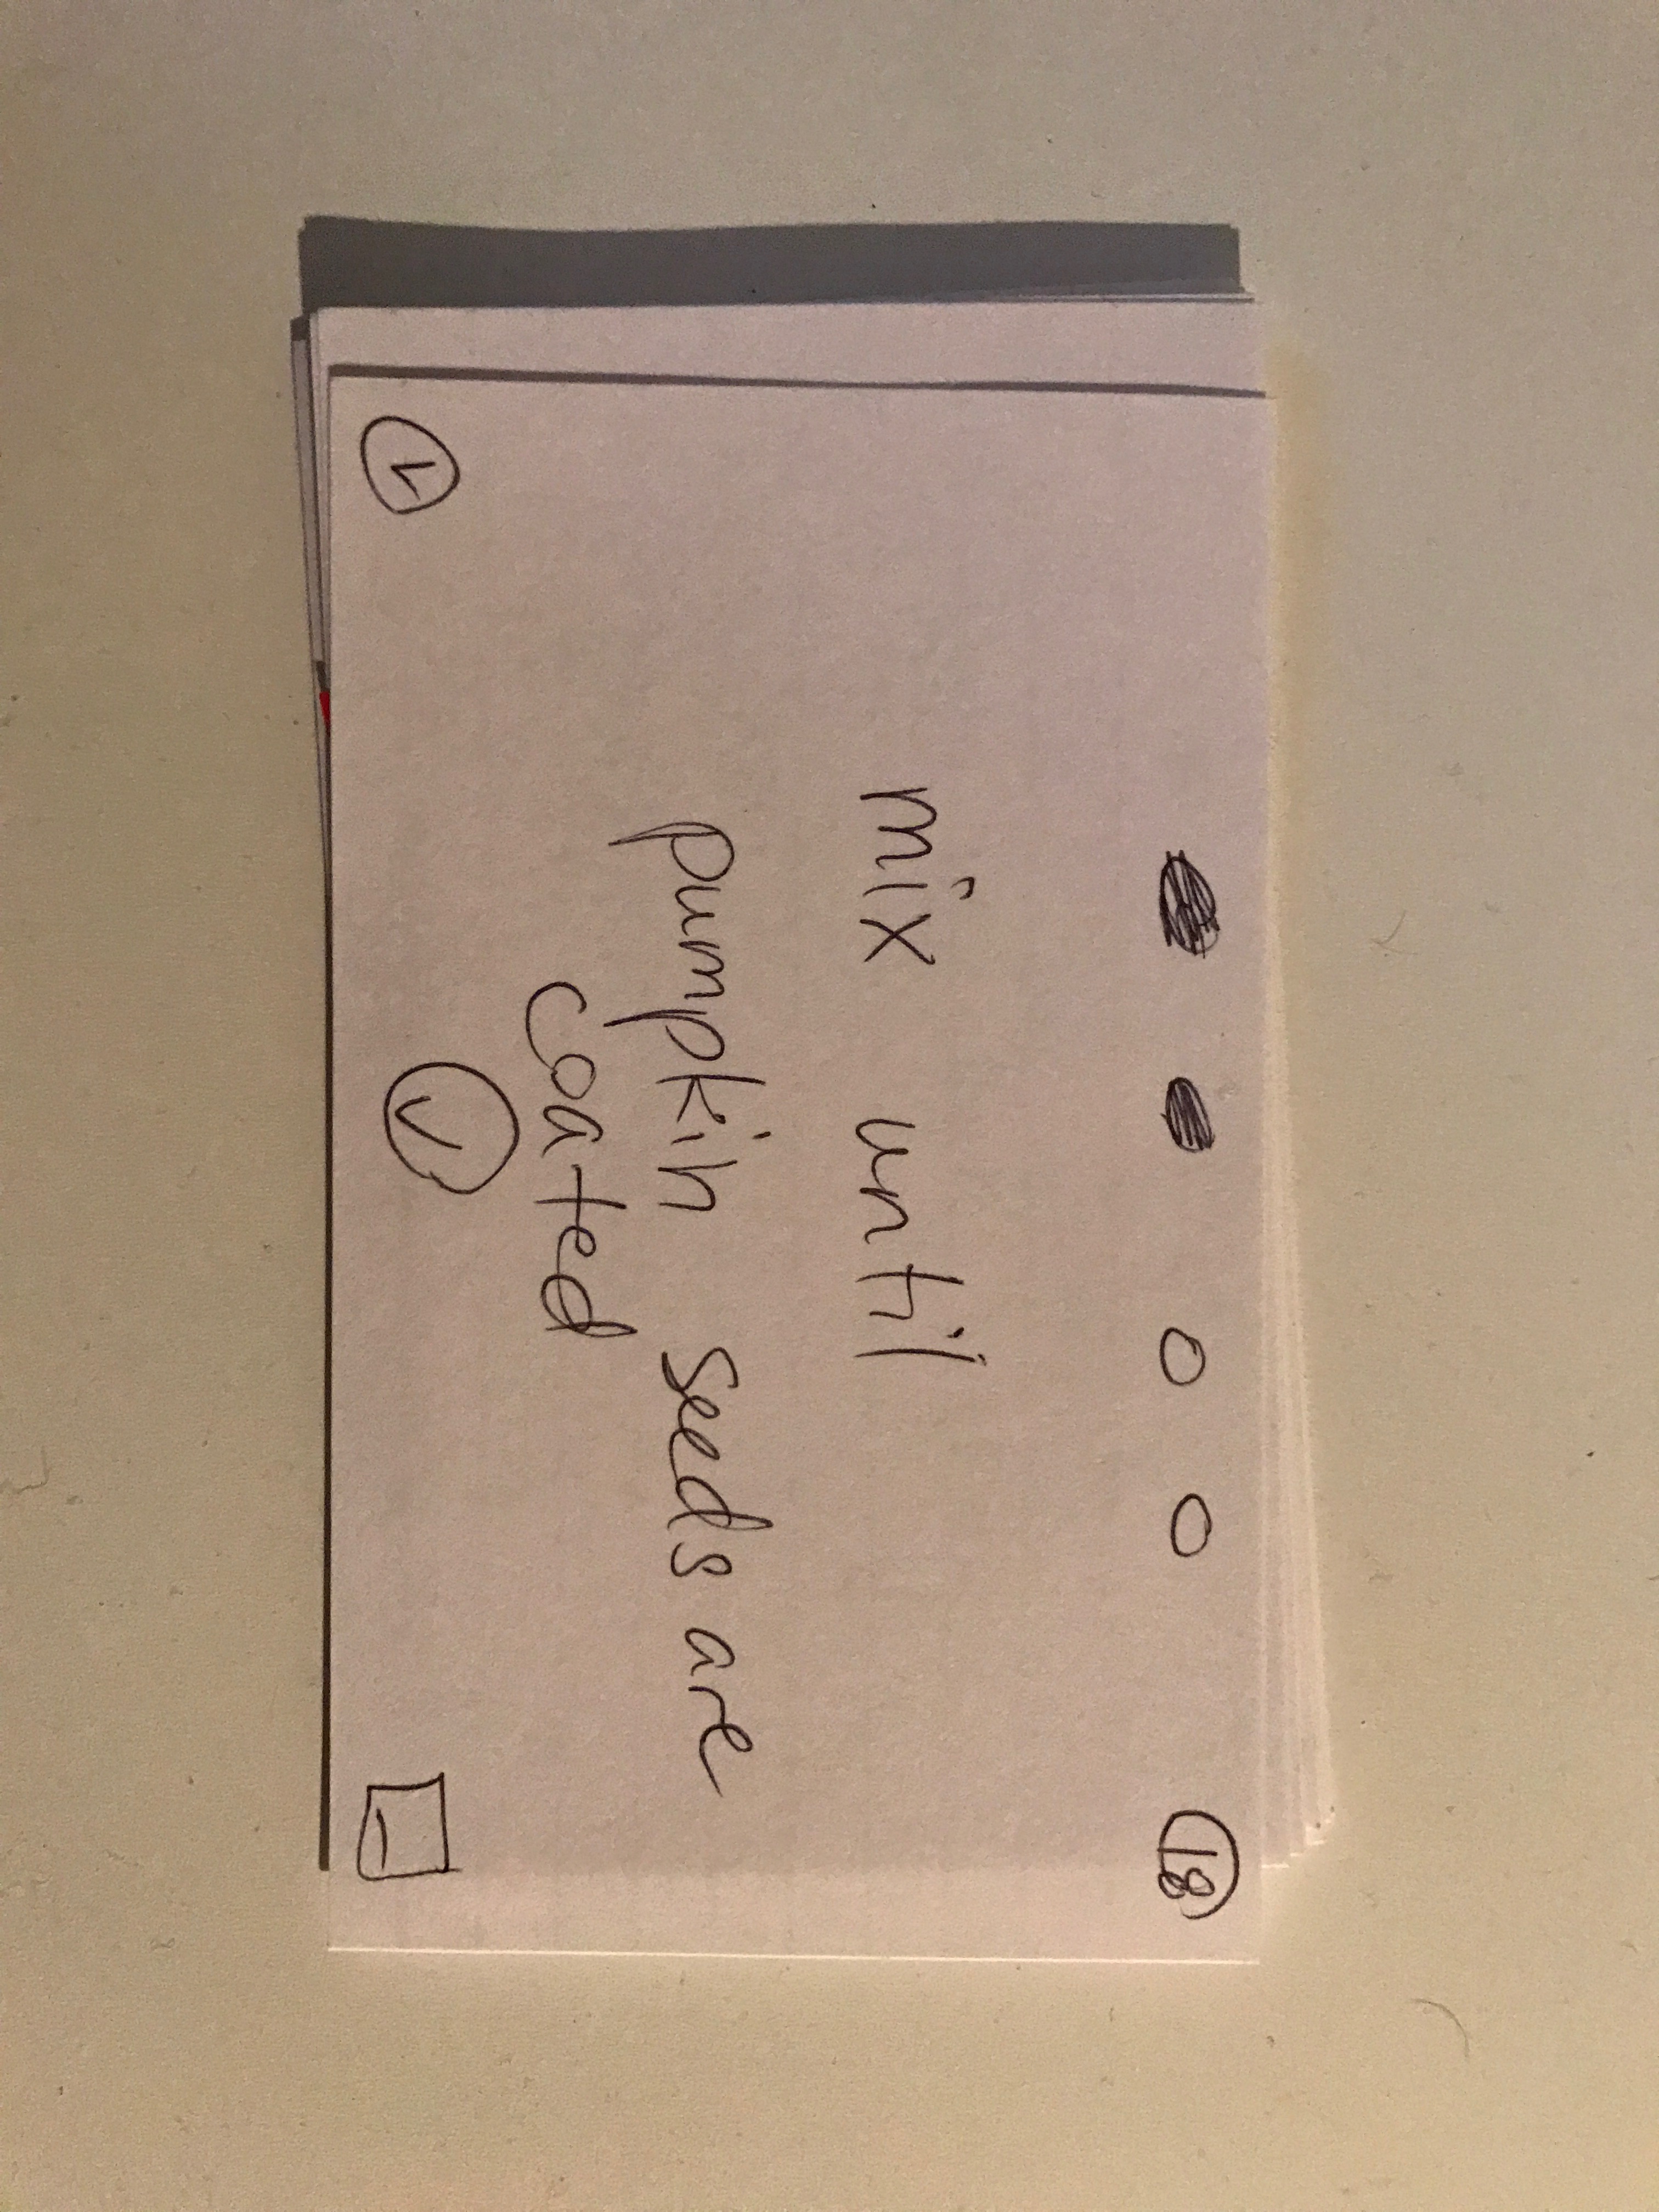 18
mix until
pumpkin seeds are
coated